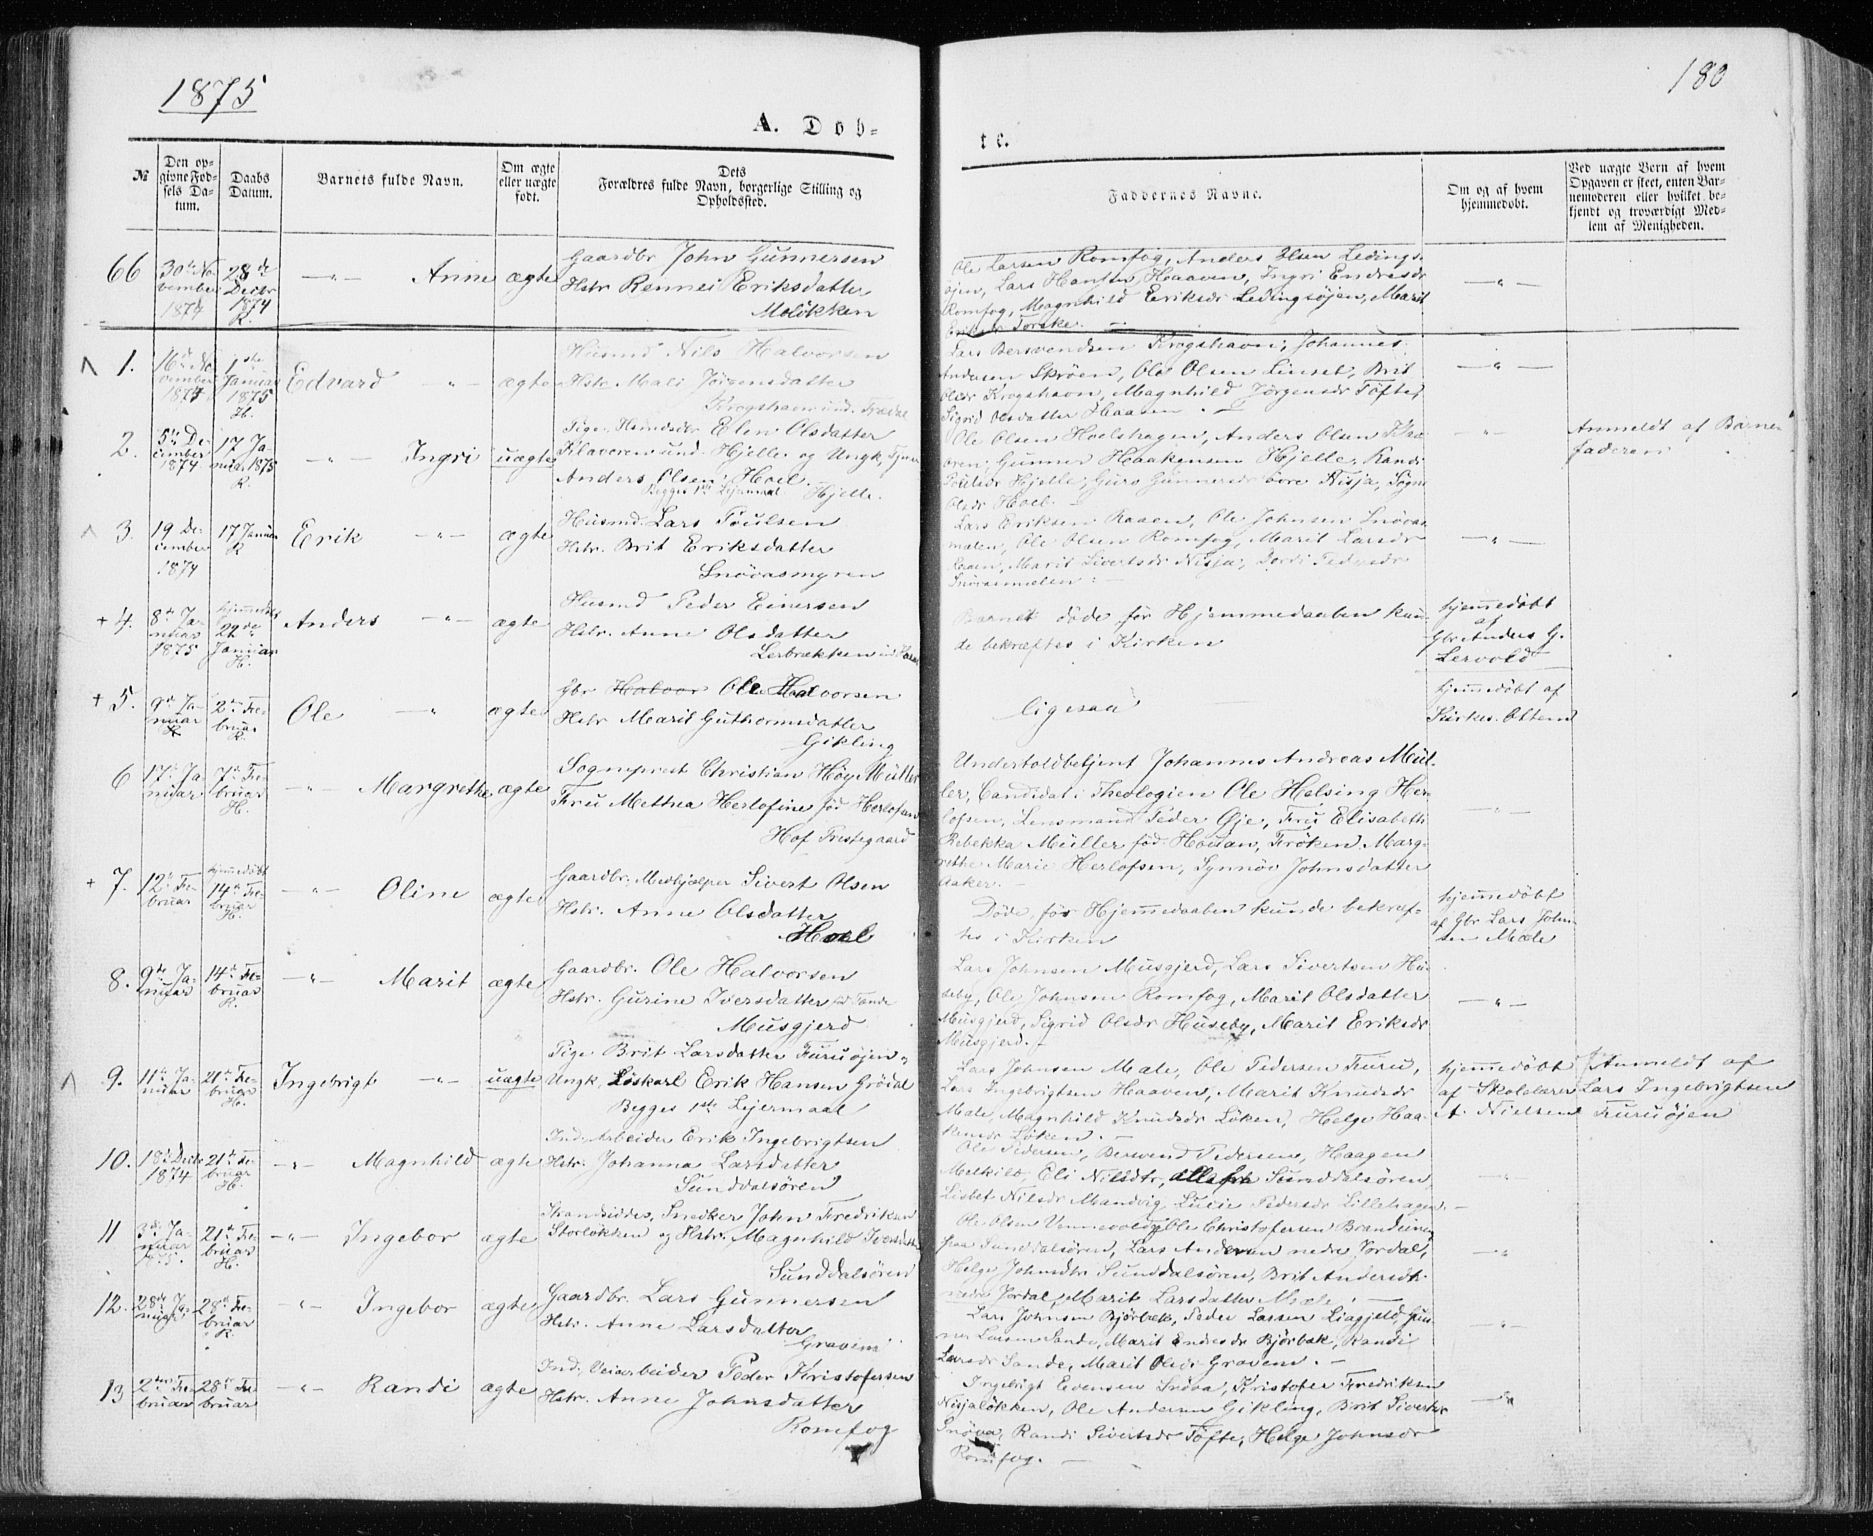 1875
180
A. Døb-
te.
№
Den op-
givne Fød-
sels Da-
tum.
Daabs
Datum.
Barnets fulde Navn.
Om ægte
eller uægte
født.
Dets
Forældres fulde Navn, borgerlige Stilling og
Opholdssted.
Faddernes Navne.
Om og af hvem
hjemmedøbt.
Ved uægte Børn af hvem
Opgaven er skeet, enten Bar-
nemoderen eller hvilket be-
kjendt og troværdigt Med-
lem af Menigheden.
66
30te No-
vember
1874
28de
Decbr
1874
K.
Anne
ægte
Gaardbr John Gunnersen
Hstr Rennei Eriksdatter
Meløkken
Ole Larsen Romfog, Anders Olsen Ledings-
øjen, Lars Hansen Haaven, Ingri Endresdr
Romfog, Magnhild Eriksdr Ledingsøjen, Marit
Eriksdr Torske.
1.
16de No-
vember
1874
1ste
Januar
1875
H.
Edvard
ægte
Husmd Nils Halvorsen
Hstr. Mali Jørgensdatter
Krogshavn und.
Lars Bersvendsen Krogshavn, Johannes
Andersen Skrøen, Ole Olsen Liuset, Brit
Olsdr Krogshavn, Magnhild Jörgensdr Töfte,
Sigrid Olsdatter Haaven.
2.
5te De-
cember
1874
17 Ja-
nuar 1875
K.
Ingri
uægte
Pige, Husmdsdtr Elen Olsdatter
Klavoren und. Hjelle og Ungk.
Anders Olsen Hoel
Begges 1ste Lejermaal Hjelle.
Ole Olsen Hoelshagen, Anders Olsen Klav-
oren, Gunner Haakensen Hjelle, Randi
Poulsdr Hjelle, Guro Gunnersdr øvre Nisja,
Olsdr Hoel.
Anmeldt af Barne-
faderen
3.
19 De-
cember
1874
17 Januar
K
Erik
ægte
Husmd. Lars Poulsen
Hstr. Brit Eriksdatter
Snövasmyren
Lars Eriksen Raaen, Ole Johnsen Snövas-
melen, Ole Olsen Romfog, Marit Larsdr
Raaen, Marit Sivertsdr Nisja, Dordi Pedersdr
Snövasmelen.
+ 4.
8de Ja-
nuar
1875
hjemmedøbt
29de
Januar
H.
Anders
ægte
Husmd Peder Einersen
Hstr. Anne Olsdatter
Lerbrækken
Barnet døde før Hjemmedaaben kun-
de bekræftes i Kirken
hjemmedøbt
af
Gbr Anders G.
Lervold
+ 5.
9de Ja-
nuar
K
2den Fe-
bruar
K.
Ole
ægte
Gbr Halvor Ole Halvorsen
Hstr Marit Guthormsdatter
Gikling
ligesaa
hjemmedøbt af
Kirkes.
6
17de Ja-
nuar
7de Fe-
bruar
H.
Margrethe
ægte
Sogneprest Christian Høy Müller
Fru Mettea Herlofine fød Herlofsen
Hof Prestegaard
Undertoldbetjent Johannes Andreas Mül-
ler, Candidat i Theologien Ole Helsing Her-
lofsen, Lensmand Peder Øje, Fru Elisabeth
Rebekka Müller fød Houan, Frøken Marg-
rethe Marie Herlofsen, Synnöv Johnsdatter
Aaker.
+ 7.
12te Fe-
bruar
hjemmedøbt
14de Fe-
bruar
H.
Oline
ægte
Gaardbr. Medhjælper Sivert Olsen
Hstr. Anne Olsdatter
Hoel
Døde, før Hjemmedaaben kunde bekræf-
tes i Kirken
hjemmedøbt
af Gbr Lars John-
sen Mæle
8.
9de Ja-
nuar
14de Fe-
bruar
K.
Marit
ægte
Gaardbr. Ole Halvorsen
Hstr. Gurine Iversdatter
Musgjerd
Lars Johnsen Musgjerd, Lars Sivertsen Hu-
seby, Ole Johnsen Romfog, Marit Olsdatter
Musgjerd, Sigrid Olsdr Huseby, Marit Eriksdr
Musgjerd.
9.
11te Ja-
nuar
21de Fe-
bruar
H.
Ingebrigt
uægte
Pige Brit Larsdatter Furuøjen og
Ungk. Löskarl Erik Hansen Grödal
Begges 1ste Lejermaal
Lars Johnsen Mæle, Ole Pedersen Furu,
Lars Ingebrigtsen Haaven, Marit Knudsdr
Mæle, Magnhild Knudsdr Løken, Helge Haa-
kensdr Løken.
hjemmedøbt
af Skolelærer
A. Nielsen
Anmeldt af
Lars Ingebrigtsen
Furuøjen
10.
18de Decbr
1874
21de Fe-
bruar
H.
Magnhild
ægte
Ind. Arbeider Erik Ingebrigtsen
Hstr. Johanna Larsdatter
Sunddalsören
Ole Pedersen, Bersvend Pedersen, Haagen
Melkild, Eli Nilsdtr, alle fra Sunddalsören,
Lisbet Nilsdr Mandvig, Lucie Pedersdr Lillehagen.
11
3die Ja-
nuar
21de Fe-
bruar
H.
Ingebor
ægte
Strandsidder, Snedker John Fredriksen
Storløkken og Hstr. Magnhild Iversdatter
Sunddalsören
Ole Olsen Vennevold, Ole Christofersen
paa Sunddalsören, Lars Andersen nedre Jordal,
Helge Johnsdtr Sunddalsören, Brit Andersdtr
nedre Jordal, Marit Larsdatter Mæle.
12.
28de Ja-
nuar
28de Fe-
bruar
K.
Ingebor
ægte
Gaardbr. Lars Gunnersen
Hstr. Anne Larsdatter
Gravem
Lars Johnsen Bjørbæk, Peder Larsen Liagjeld, Gun-
ner Larsen Sande, Marit Endresdr Bjørbæk, Randi
Larsdr Sande, Marit Olsdr Gravem.
13
2den Fe-
bruar
28de Fe-
bruar
Randi
ægte
Ind. Veiarbeider Peder Kristofersen
Hstr. Anne Johnsdatter
Romfog
Ingebrigt Evensen Snöva, Kristofer Fredriksen
Nisjaløkken, Ole Andersen Gikling, Brit Sivertsdr
Snöva, Randi Sivertsdr Töfte, Helge Johnsdr
Romfog.